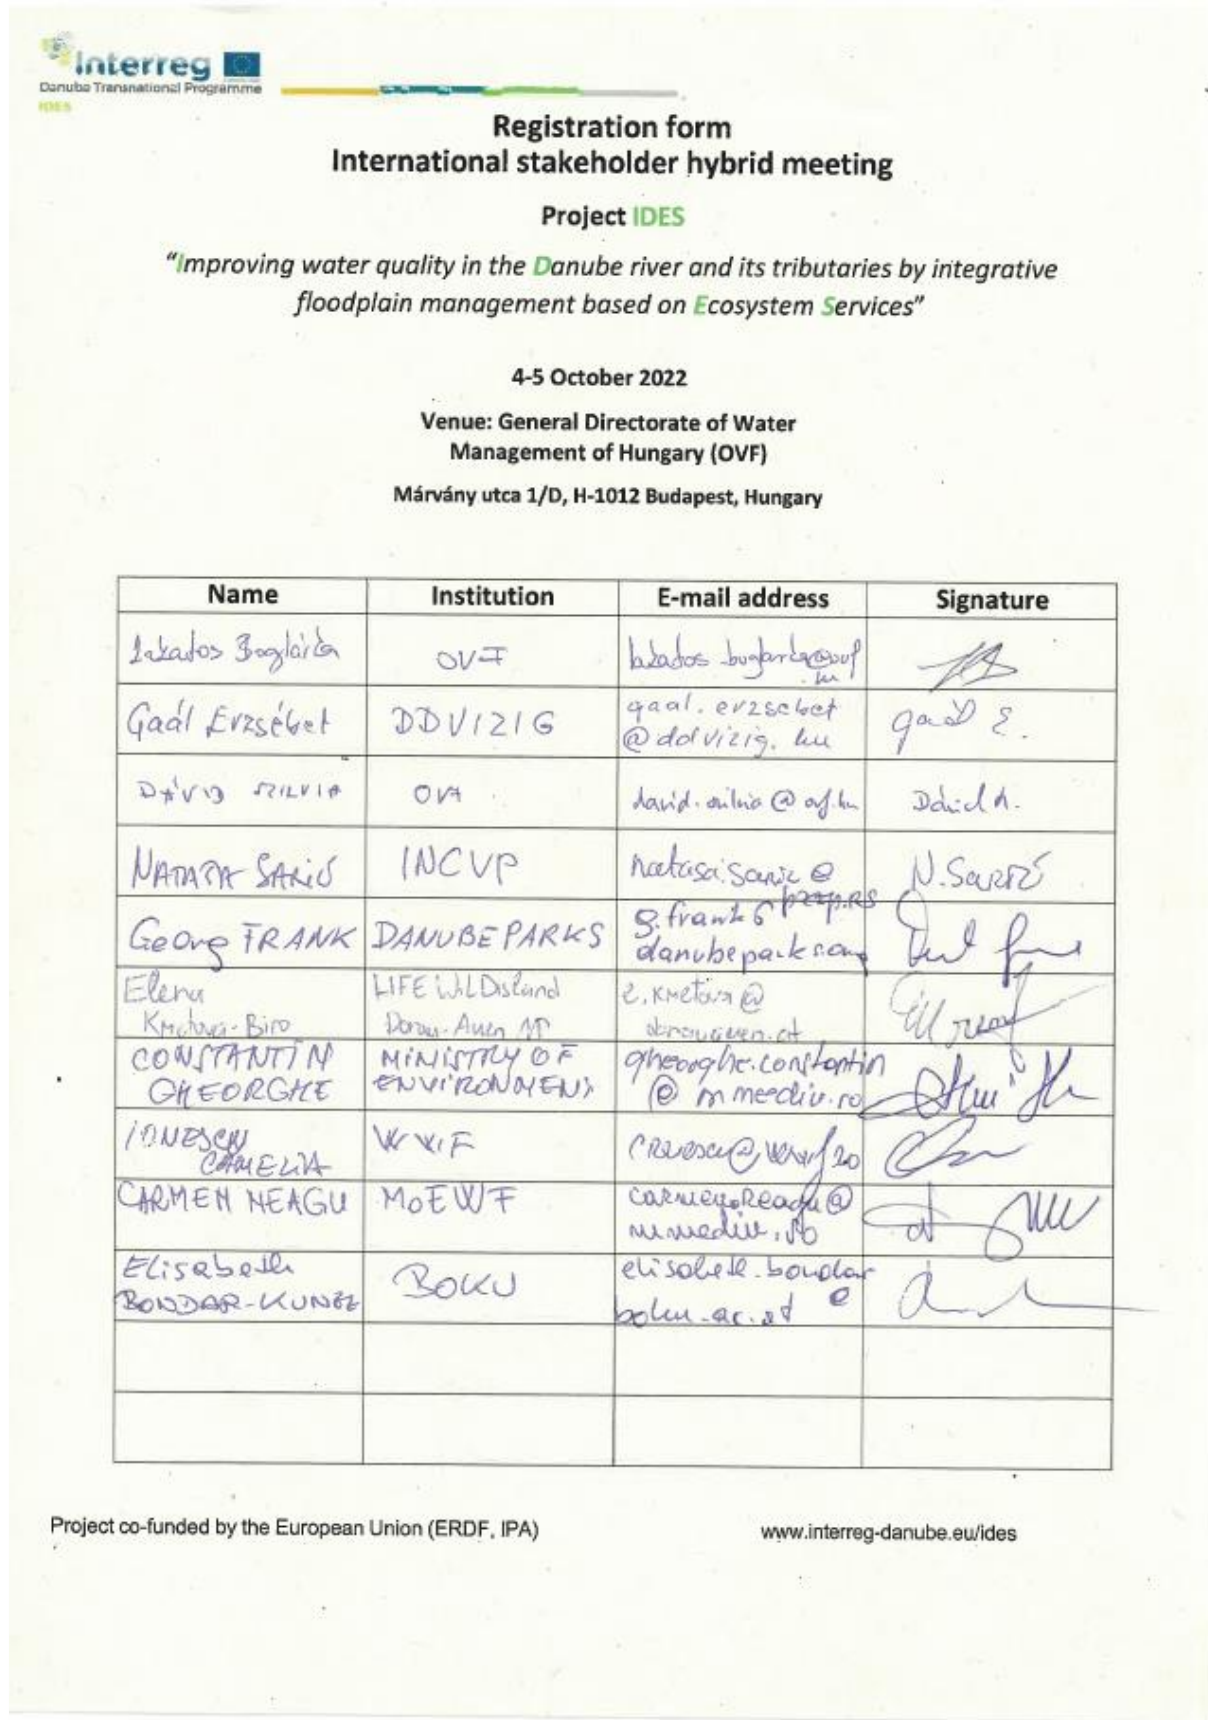 Interreg
Danube Transnational Programme
IDES
Registration form
International stakeholder hybrid meeting
Project IDES
"Improving water quality in the Danube river and its tributaries by integrative
floodplain management based on Ecosystem Services"
4-5 October 2022
Venue: General Directorate of Water
Management of Hungary (OVF)
Márvány utca 1/D, H-1012 Budapest, Hungary
Name Institution E-mail address Signature
Lakatos Boglárka OVF
Gaál Erzsébet DDVIZIG gaal.erzsebet
@ddvizig.hu Gaál E.
DÁVID SZILVIA OVF david.szilvia@ovf.hu
NATAŠA SARIĆ INCVP natasa.saric@ N. Sarić
Georg FRANK DANUBEPARKS g.frank@
danubeparks.org
Elena LIFE WILDisland e.kmetova@
Kmetova-Biro Donau-Auen NP donauauen.at
CONSTANTIN MINISTRY OF gheorghe.constantin
GHEORGHE ENVIRONMENT @mmediu.ro
IONESCU WWF
CAMELIA
CARMEN NEAGU MOEWF carmen.neagu@
mmediu.ro
Elisabeth BOKU elisabeth.bondar
BONDAR-KUNZE @
boku.ac.at
Project co-funded by the European Union (ERDF, IPA) www.interreg-danube.eu/ides